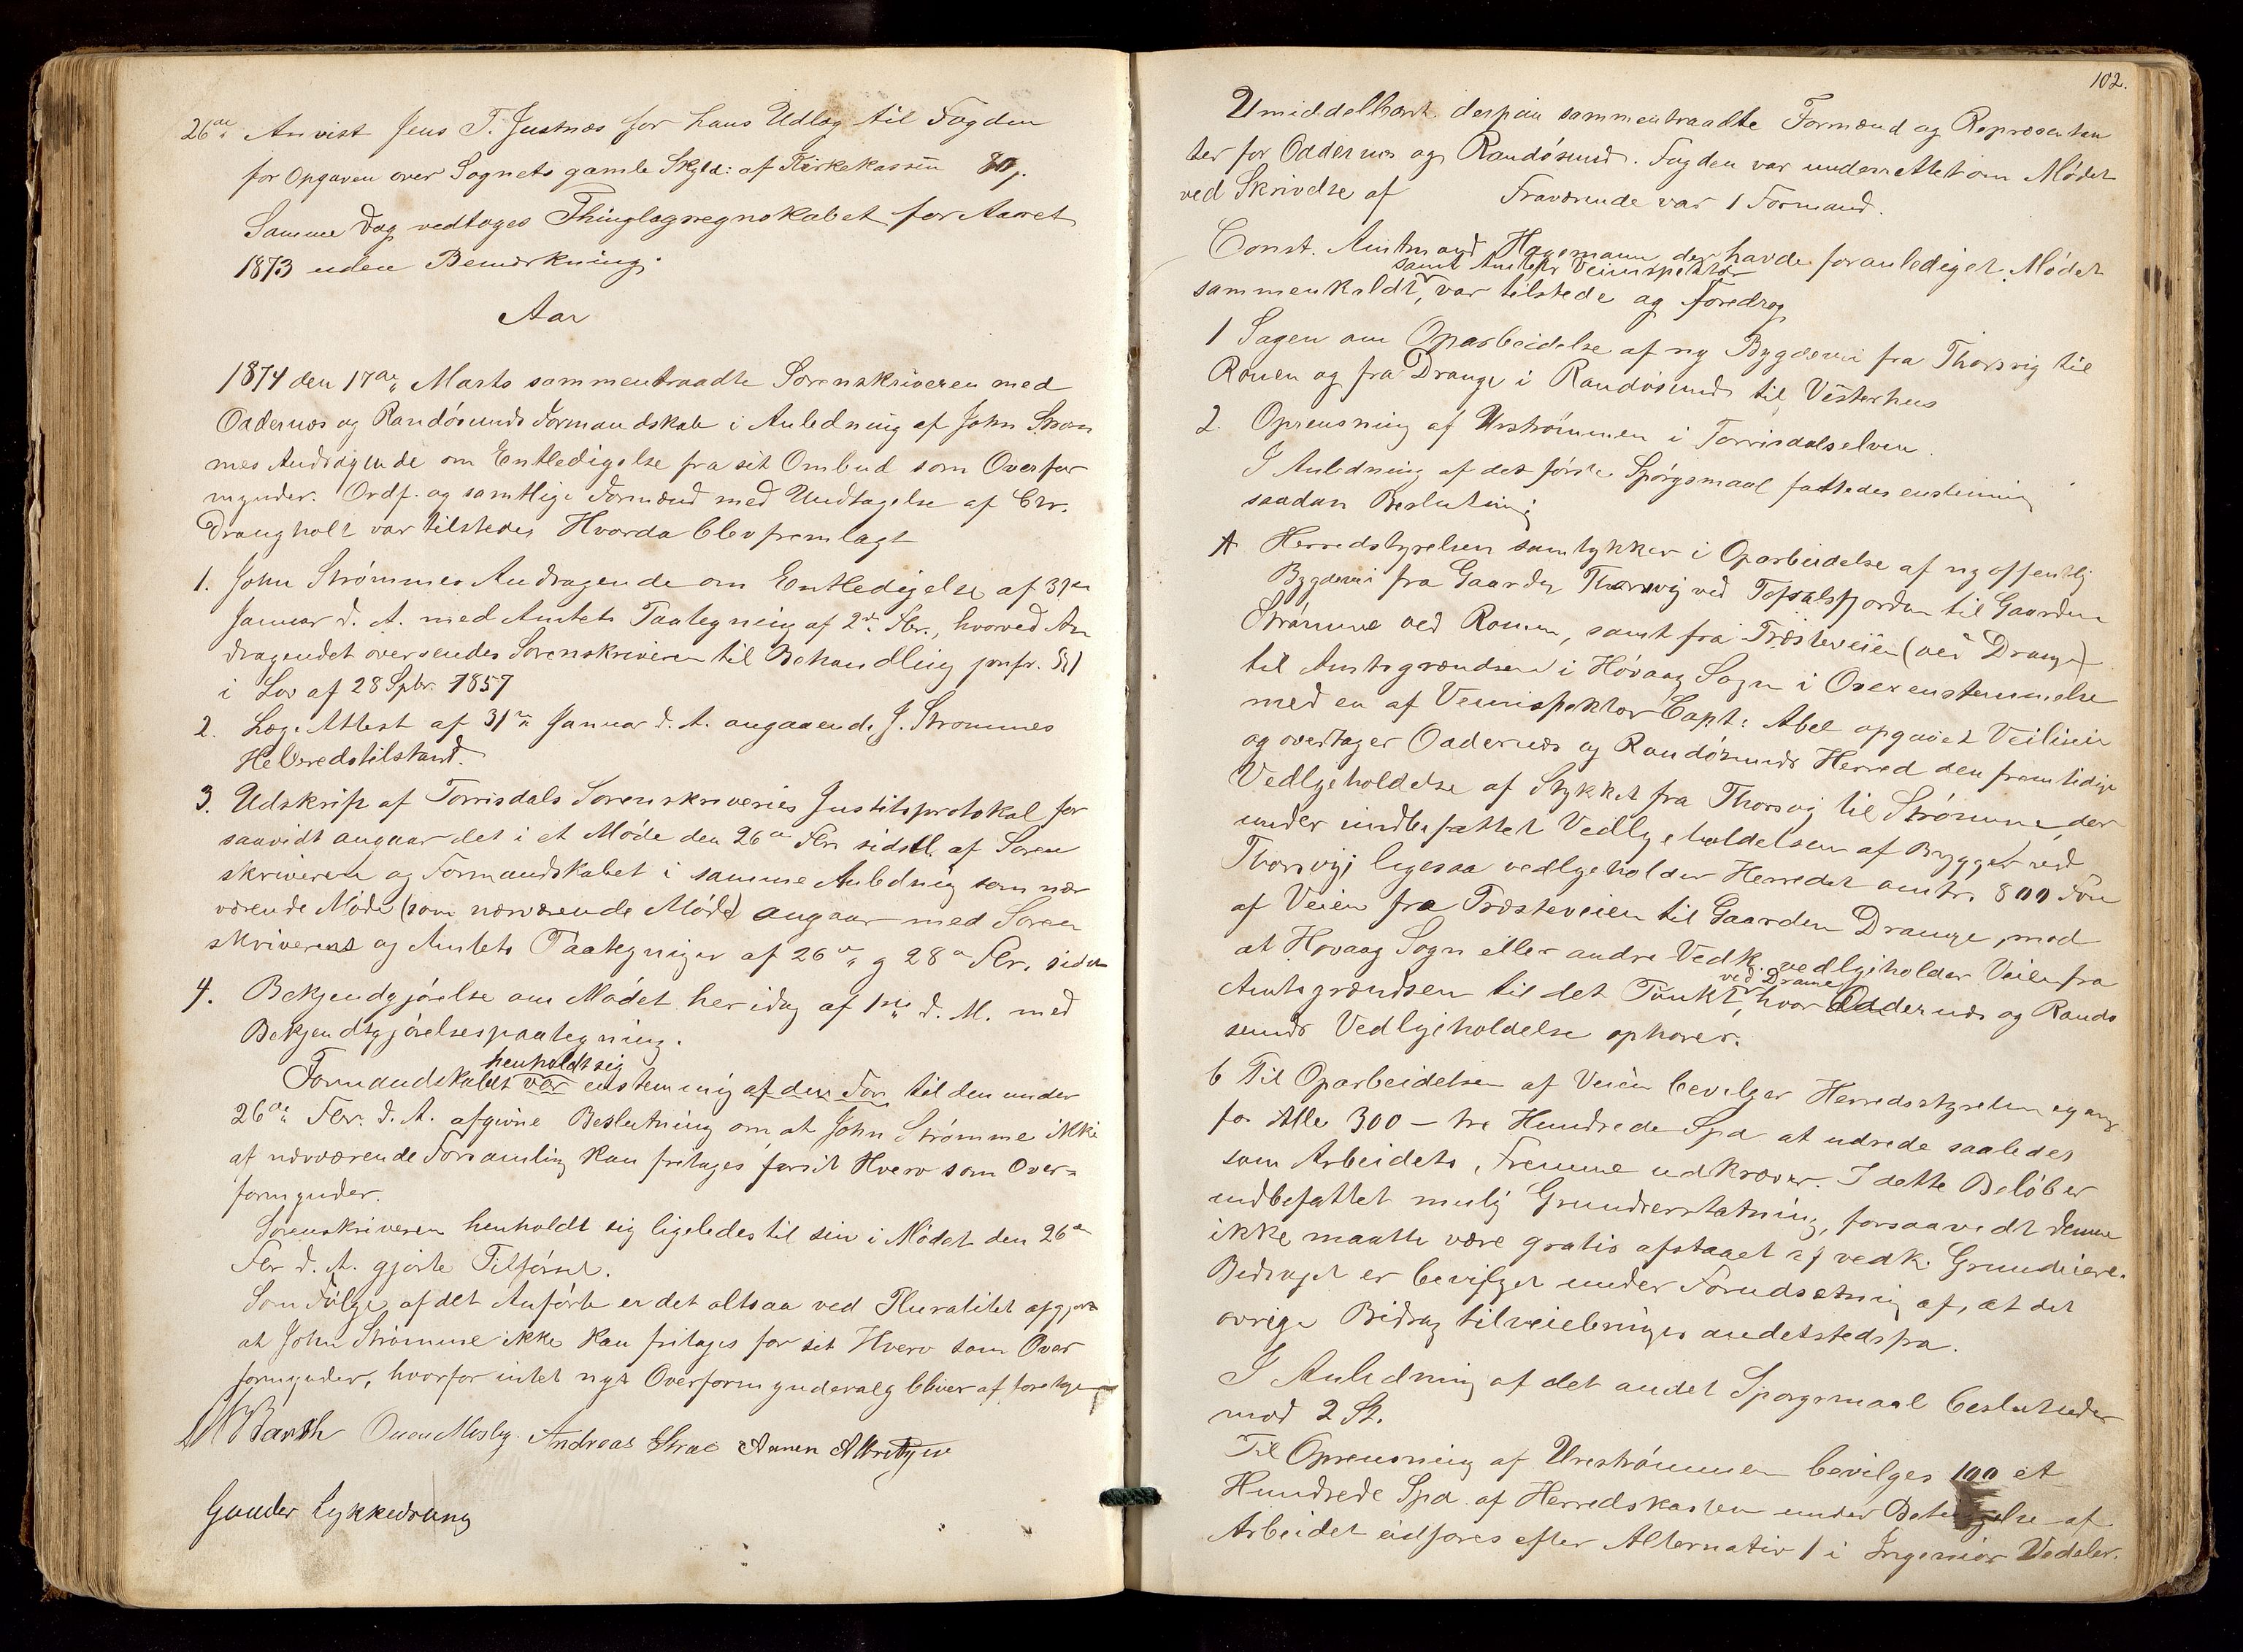 26de Anvist Jens T. Justnæs for hans Udlæg til Fogden
for Opgaven over Sognets gamle Skyld: af Kirkekassen 80
Samme Dag vedtoges Thinglagsregnskabet for Aaret
1873 uden Bemærkning.
Aar
1874 den 17de Marts sammentraadte Sorenskriveren med
Oddernæs og Randøsunds Formandskab i Anledning af John Strøm
mes Andragende om Entledigelse fra sit Ombud som Overfor
mynder. Ordf. og samtlige Formænd med Undtagelse af Chr.
Drangholt var tilstedes Hvorda blev fremlagt
1. John Strømmes Andragende om Entledigelse af 31te
Januar d. A. med Amtets Paategning af 2den Fbr., hvorved An
dragendet oversendes Sorenskriveren til Behandling jvnfr. § 1
i Lov af 28 Spbr. 1857
2. Læge Attest af 31te Januar d. A. angaaende J. Strømmes
Helbredstilstand.
3. Udskrift af Torrisdals Sorenskriveries Justitsprotokol for
saavidt angaar det i et Møde den 26de Fbr. sidstl. af Soren
skriveren og Formandskabet i samme Anledning som nær
værende Møde (som nærværende Møde) angaar med Soren
skriverens og Amtets Paategninger af 26de og 28de Fbr. sidstl.
4. Bekjendgjørelse om Mødet her idag af 1ste d. M. med
Bekjendtgjørelsespaategning.
henholdt sig
Formandskabet var enstemmig af den For til den under
26de Fbr. d. A. afgivne Beslutning om at John Strømme ikke
af nærværende Forsamling kan fritages for sit Hverv som Over=
formynder.
Sorenskriveren henholdt sig ligeledes til sin i Mødet den 26de
Fbr d. A. gjorte Tilførsel.
Som Følge af det Anførte er det altsaa ved Pluralitet afgjort
at John Strømme ikke kan fritages for sit Hverv som Over
formynder, hvorfor intet nyt Overformyndervalg bliver at foretage
Barth Ouen Mosby. Andreas Strai
Gunder Lykkedrang
102.
Umiddelbart derpaa sammentraadte Formænd og Repræsentan
ter for Oddernæs og Randøsund. Fogden var underrettet om Mødet
ved Skrivelse af Fraværende var 1 Formand.
Const. Amtmand Hagemann der havde foranlediget Mødet
samt Amtets Veiinspektør
sammenkaldt, var tilstede og foredrog
1 Sagen om Oparbeidelse af ny Bygdevei fra Thorsvig til
Ronen og fra Drange i Randøsund til Vesterhus
2. Oprensning af Urstrømmen i Torrisdalselven.
I Anledning af det første Spørgsmaal fattedes enstemmig
saadan Beslutning
A Herredstyrelsen samtykker i Oparbeidelse af ny offentlig
Bygdevei fra Gaarden Thorsvig ved Topdalsfjorden til Gaarden
Strømme ved Ronen, samt fra Præsteveien (ved Drange)
til Amtsgrændsen i Høvaag Sogn i Overenstemmelse
med en af Veiinspektør Capt: Abel opgaaet Veilinie
og overtager Oddernæs og Randøsunds Herred den fremtidige
Vedligeholdelse af Stykket fra Thorsvig til Strømme, der
under indbefattet Vedligeholdelsen af Bryggen ved
Thorsvig; ligesaa vedligeholder Herredet omtr. 800 Fvn
af Veien fra Præsteveien til Gaarden Drange, mod
at Høvaag Sogn eller andre Vedk. vedligeholder Veien fra
ved Drange
Amtsgrændsen til det Punkt, hvor Oddernæs og Randø
sunds Vedligeholdelse ophører.
b Til Oparbeidelsen af Veien bevilger Herredsstyrelsen engang
for Alle 300 – tre Hundrede Spd at udrede saaledes
som Arbeidets Fremme udkræver. I dette Beløb er
indbefattet mulig Grunderstatning, forsaavidt denne
ikke maatte være gratis afstaaet af vedk. Grundeiere.
Bidraget er bevilget under Forudsetning af, at det
øvrige Bidrag tilveiebringes andetstedsfra.
I Anledning af det andet Spørgsmaal besluttedes
mod 2 St.
Til Oprensning af Urestrømmen bevilges 100 et
Hundrede Spd af Herredskassen under Betingelse af
Arbeidet udføres efter Alternativ 1 i Ingeniør Vedeler.